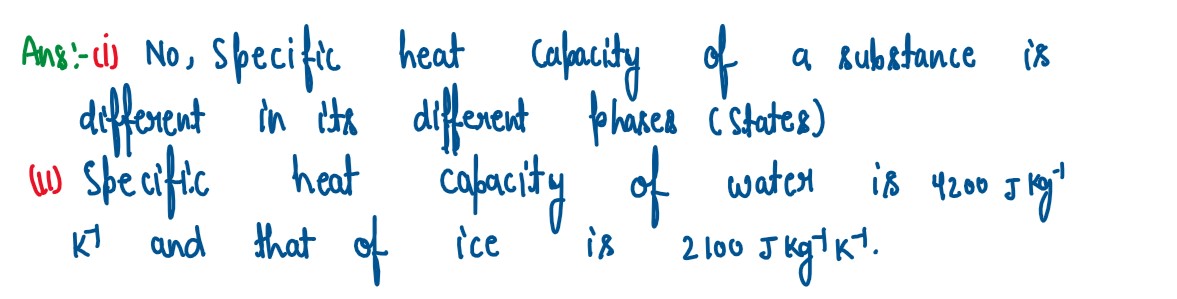 Ans:-(i) No, Specific heat Capacity of a substance is
different in its different phases (States)
(ii) Specific heat capacity of water is 4200 J Kg⁻¹
K⁻¹ and that of ice is 2100 J Kg⁻¹ K⁻¹.